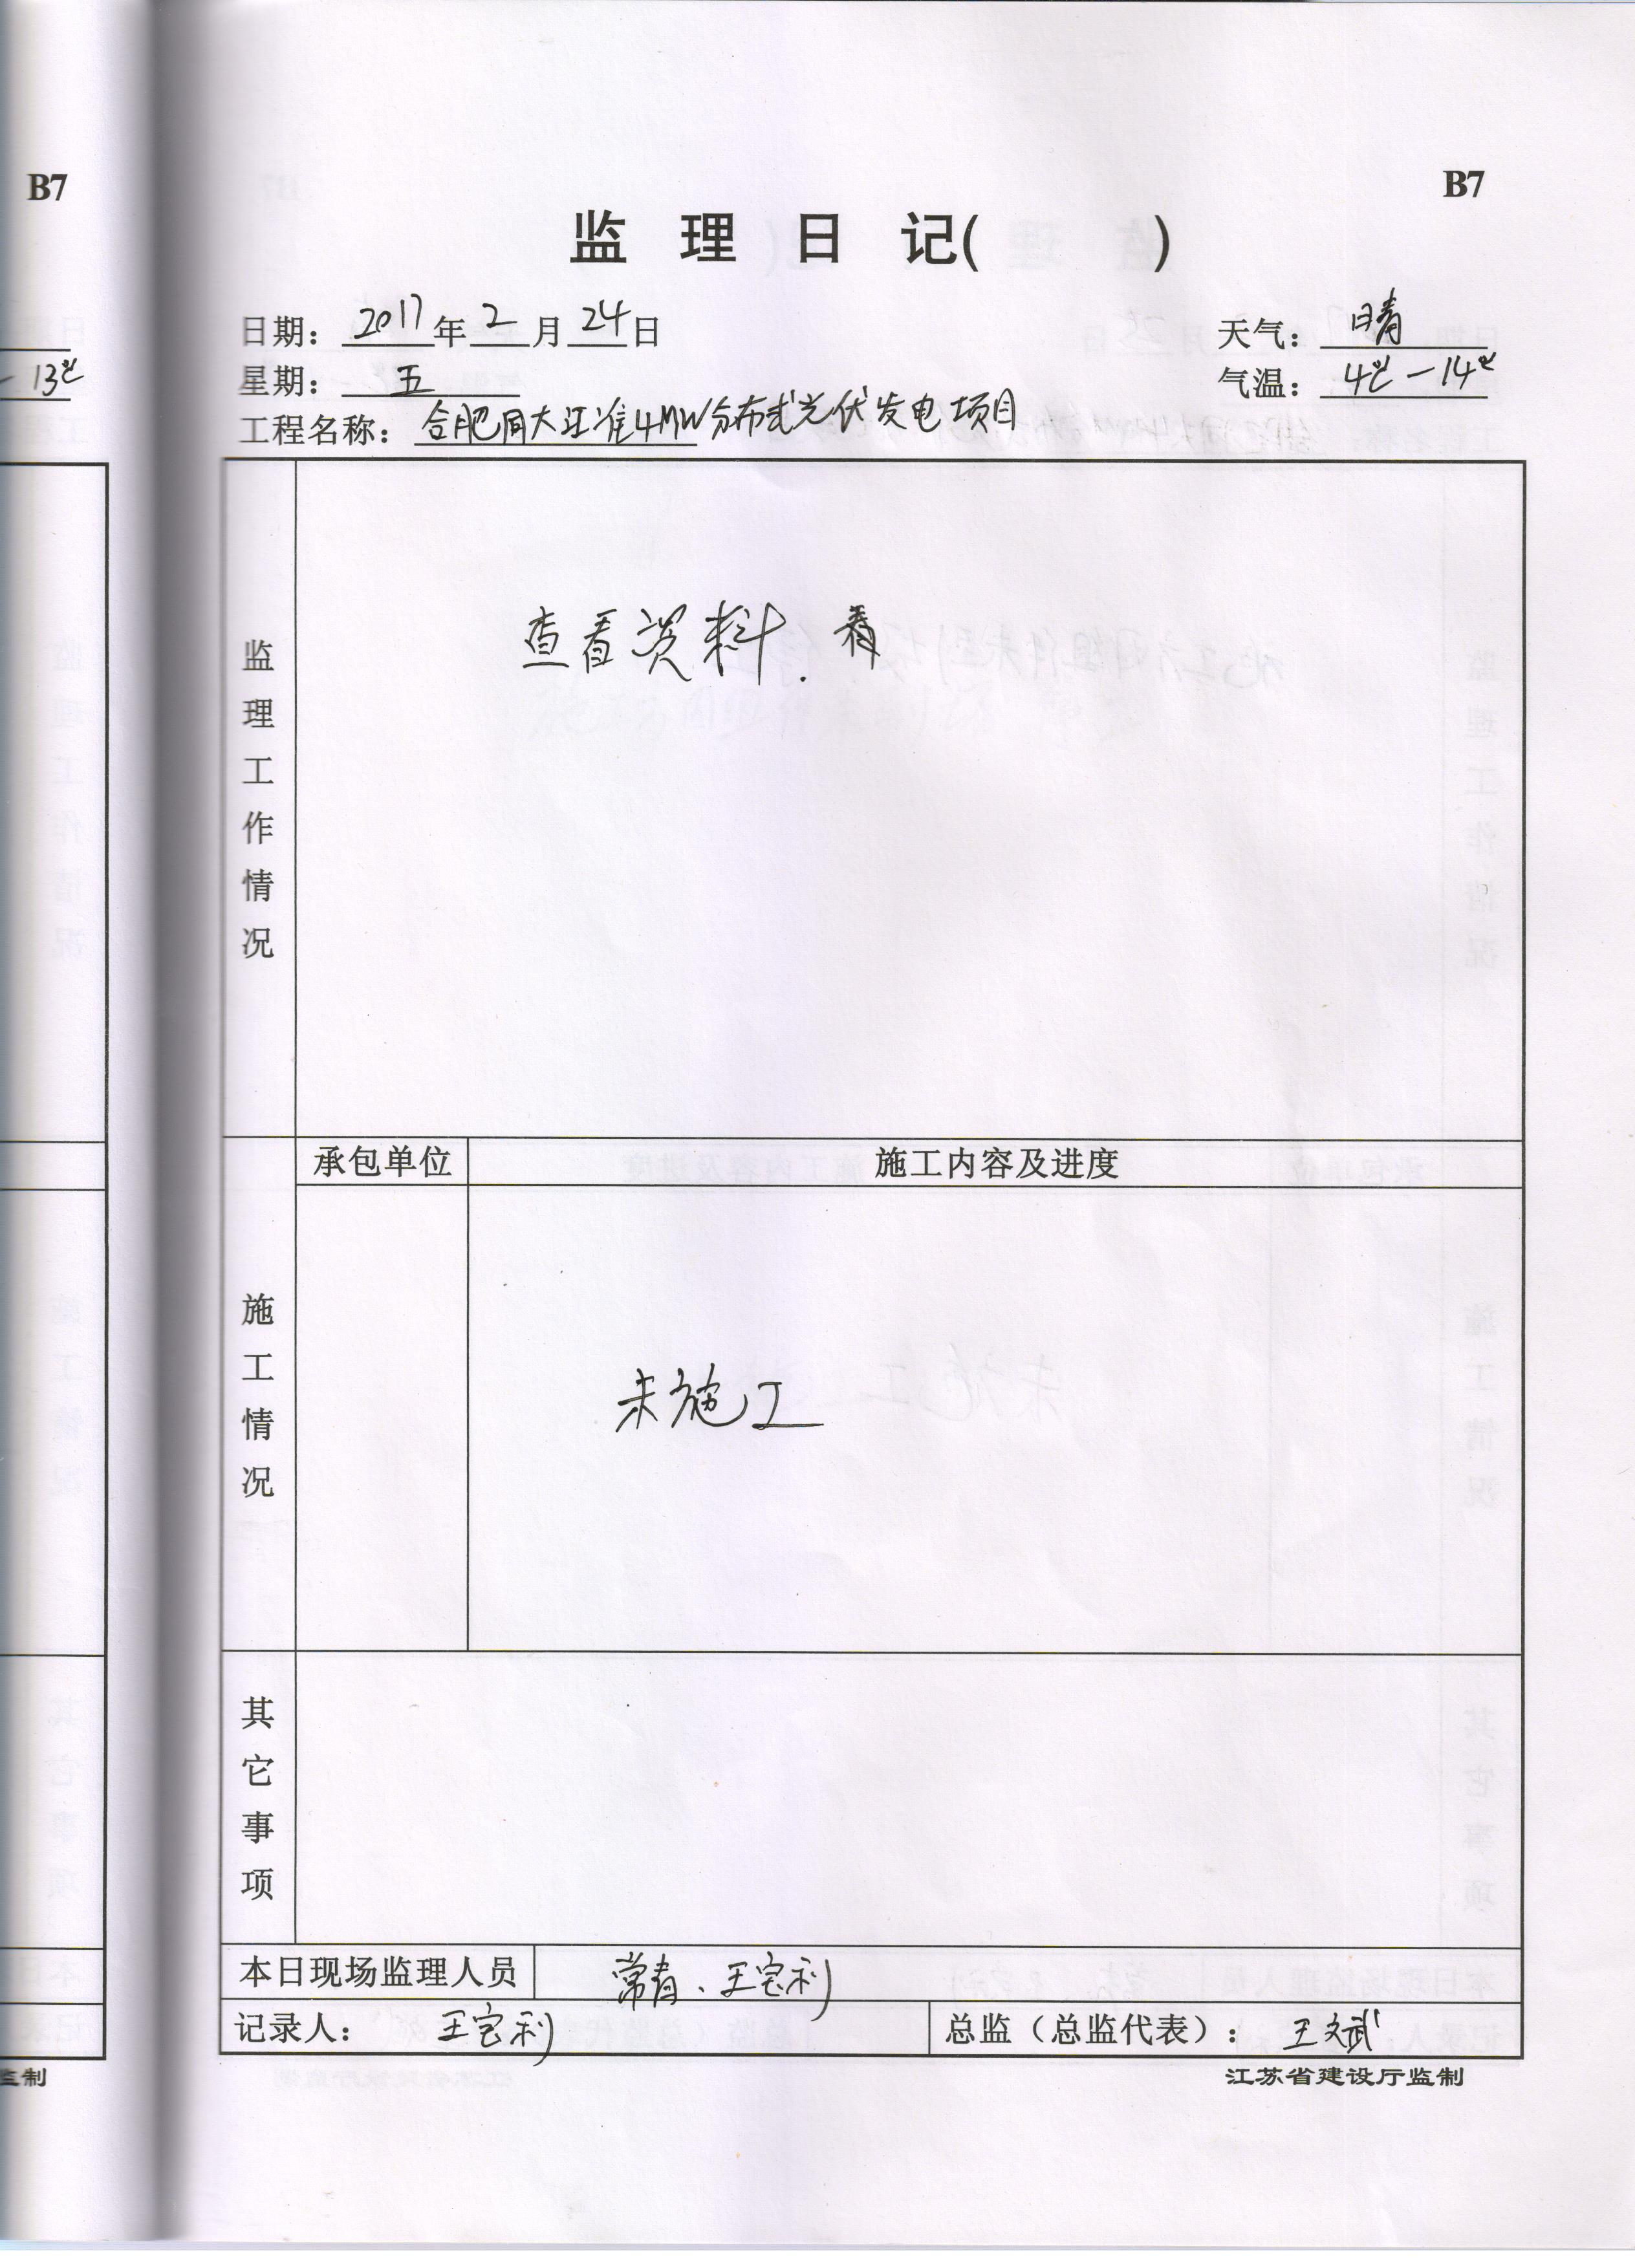 B7
B7
监 理 日 记( )
日期：2017年2月24日 天气：晴
- 13℃
星期：五 气温：4℃-14℃
工程名称：合肥同大江淮4MW分布式光伏发电项目
监理工作情况
查看资料.
承包单位 施工内容及进度
施工情况
未施工
其它事项
本日现场监理人员 常青、王宝利
记录人：王宝利 总监（总监代表）：王文斌
监制
江苏省建设厅监制